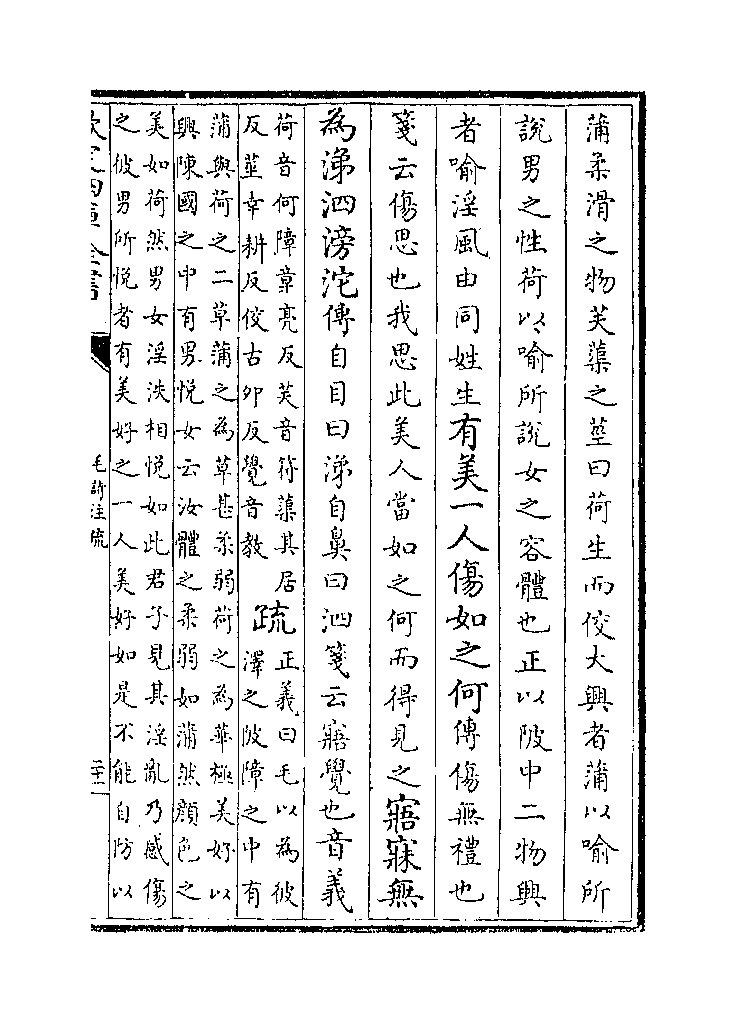 蒲柔滑之物芙蕖之莖曰荷生而佼大興者蒲以喻所
說男之性荷以喻所說女之容體也正以陂中二物興
者喻淫風由同姓生有美一人傷如之何傳傷無禮也
箋云傷思也我思此美人當如之何而得見之寤寐無
為涕泗滂沱傳自目曰涕自鼻曰泗箋云寤覺也音義
荷音何障章亮反芙音符蕖其居
反莖幸耕反佼古卯反覺音教
疏
正義曰毛以為彼
澤之陂障之中有
蒲與荷之二草蒲之為草甚柔弱荷之為華極美好以
興陳國之中有男悅女云汝體之柔弱如蒲然顏色之
美如荷然男女淫泆相悅如此君子見其淫亂乃感傷
之彼男所悅者有美好之一人美好如是不能自防以
欽定四庫全書
毛詩注疏